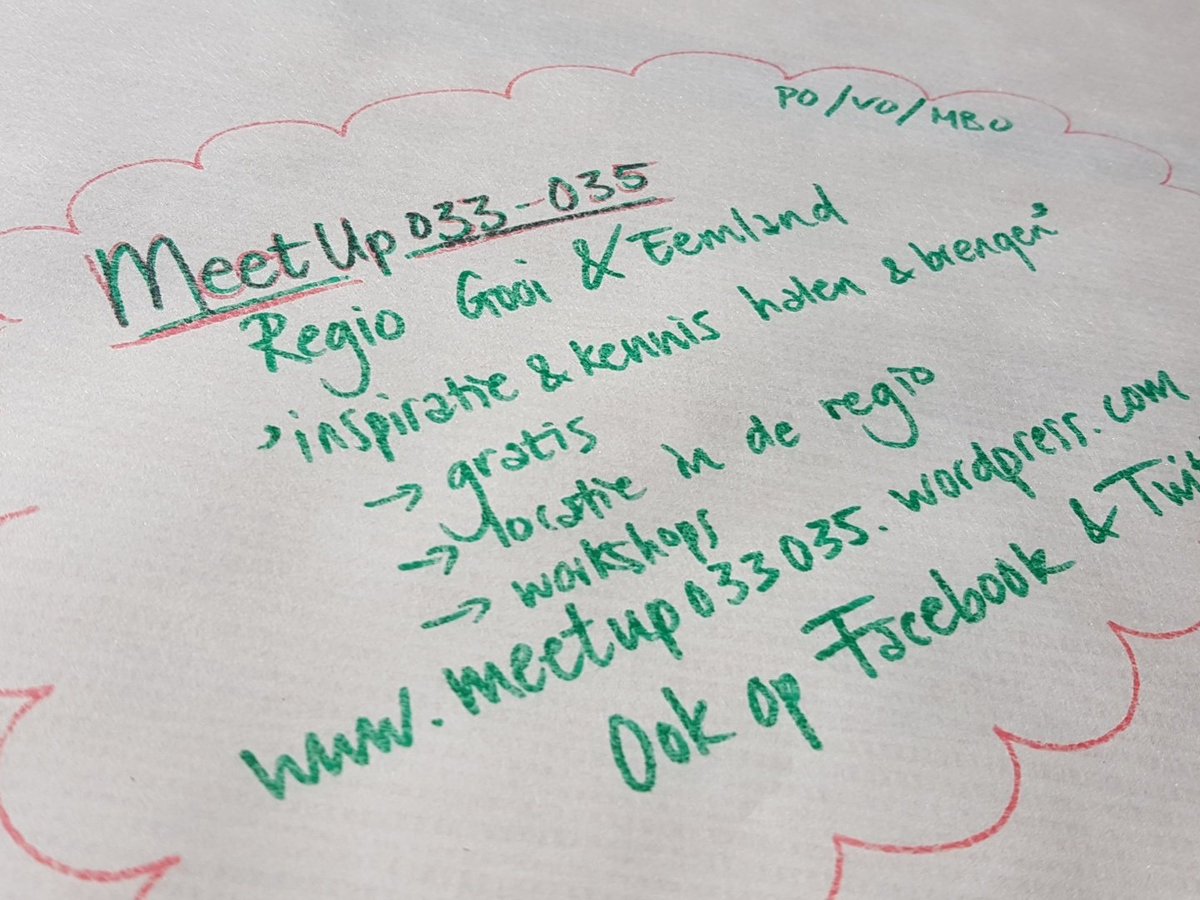 PO/VO/MBO
MeetUp 033-035
Regio Gooi & Eemland
"inspiratie & kennis halen & brengen"
→ gratis
→ locatie in de regio
→ workshops
www.meetup033035.wordpress.com
Ook op Facebook & Twit